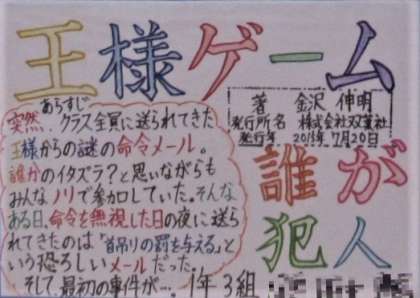 王様ゲーム
著 金沢 伸明
発行所名 株式会社双葉社
発行年 2013年7月20日
あらすじ
突然、クラス全員に送られてきた
王様からの謎の命令メール。
誰かのイタズラ?と思いながらも
みんなノリで参加していた。そんな
ある日、命令を無視した日の夜に送ら
れてきたのは「首吊りの罰を与える」と
いう恐ろしいメールだった。
そして最初の事件が…。
誰が
犯人
1年3組